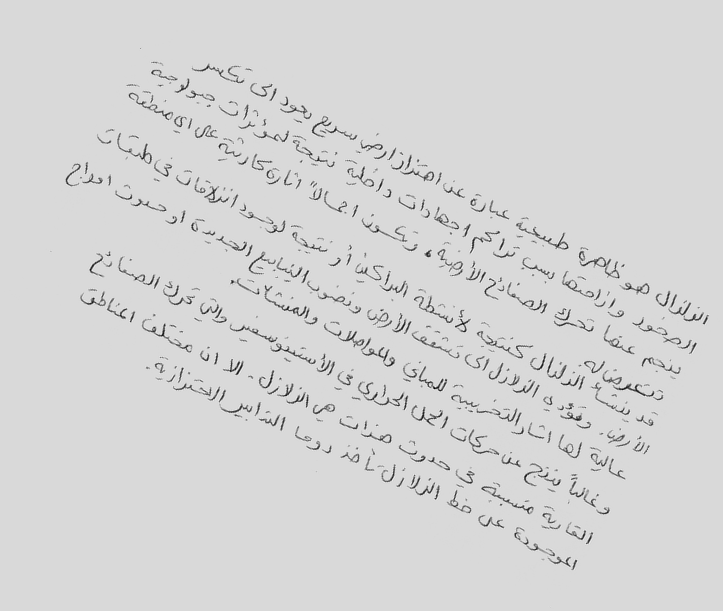 الزلزال هو ظاهرة طبيعية عبارة عن اهتزاز ارضي سريع يعود الى تكسر
الصخور وازاحتها بسبب تراكم اجهادات داخلية نتيجة لمؤثرات جيولوجية
ينجم عنها تحرك الصفائح الأرضية، وتكون اجمالاً اثاره كارثية على اي منطقة
تتعرض له.
قد ينشأ الزلزال كنتيجة لأنشطة البراكين أو نتيجة لوجود انزلاقات في طبقات
الأرض. وتؤدي الزلازل الى تشقق الأرض ونضوب الينابيع الجديدة او حدوث امواج
عالية لها اثار التخريبية للمباني والمواصلات والمنشئات.
وغالباً ينتج عن حركات الحمل الحراري في الأستينوسفير والتي تحرك الصفائح
القارية متسببة في حدوث هزات هي الزلازل. الا ان مختلف المناطق
الموجودة على خط الزلازل تأخذ دوما التدابير الاحترازية.